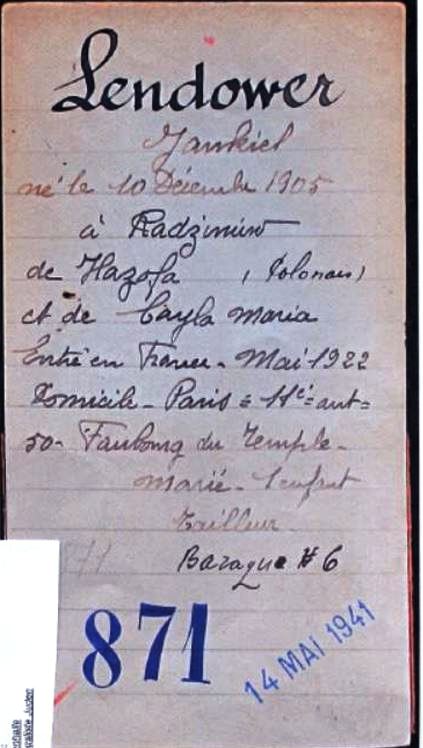 Lendower
Jankiel
né le 10 Décembre 1905
à Radzimin
de Hazofa (Polonais)
et de Cayla Maria
Entré en France - Mai 1922
Domicile - Paris = 11è = arrt =
50 - Faubourg du Temple -
Marié - 1 enfant
Tailleur
Baraque # 6
871
871
14 MAI 1941